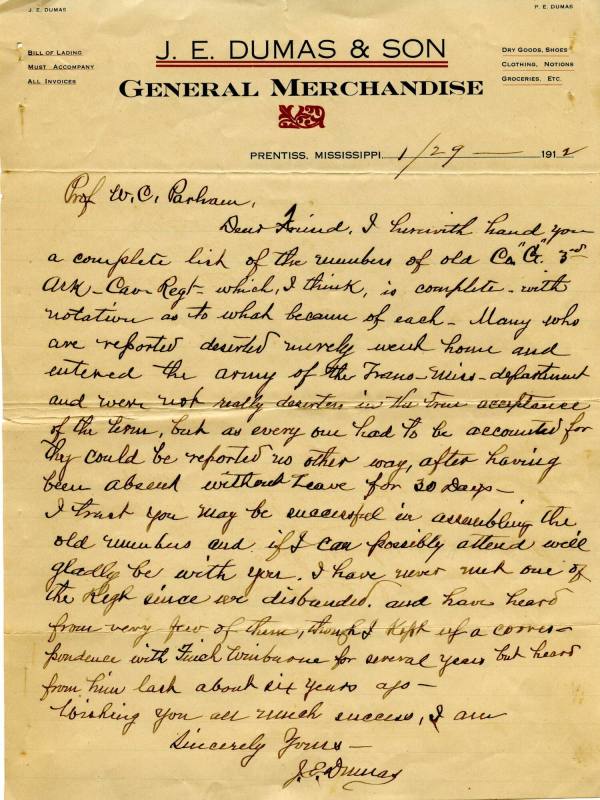 J. E. DUMAS
P. E. DUMAS
J. E. DUMAS & SON
BILL OF LADING
MUST ACCOMPANY
ALL INVOICES
DRY GOODS, SHOES
CLOTHING, NOTIONS
GROCERIES, ETC.
GENERAL MERCHANDISE
PRENTISS, MISSISSIPPI, 1/29 — 1912
Prof W. C. Parham,
Dear Friend, I herewith hand you
a complete list of the members of old Co. "G". 3rd
Ark - Cav - Regt - which, I think, is complete - with
notation as to what became of each - Many who
are reported deserted merely went home and
entered the army of the Trans-Miss - department
and were not really deserters in the true acceptance
of the term, but as every one had to be accounted for
they could be reported no other way, after having
been absent without Leave for 30 Days -
I trust you may be successful in assembling the
old members and if I can possibly attend will
gladly be with you. I have never met one of
the Regt since we disbanded. and have heard
from very few of them, though I kept up a corres-
pondence with Winburne for several years but heard
from him last about six years ago -
Wishing you all much success, I am
Sincerely Yours -
J. E. Dumas